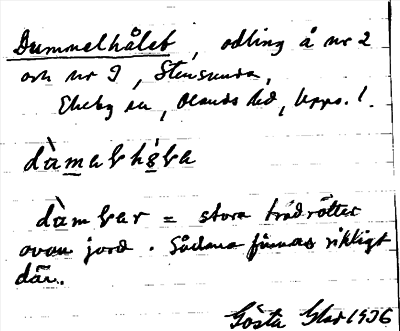 Dummelhålet, odling å nr 2
och nr 9, Stensunda,
Ekeby sn, Olands hd, Upps. l.
dàmaļhǻļa
dàmļar = stora trädrötter
ovan jord. Sådana finnas rikligt
där.
Gösta 1936